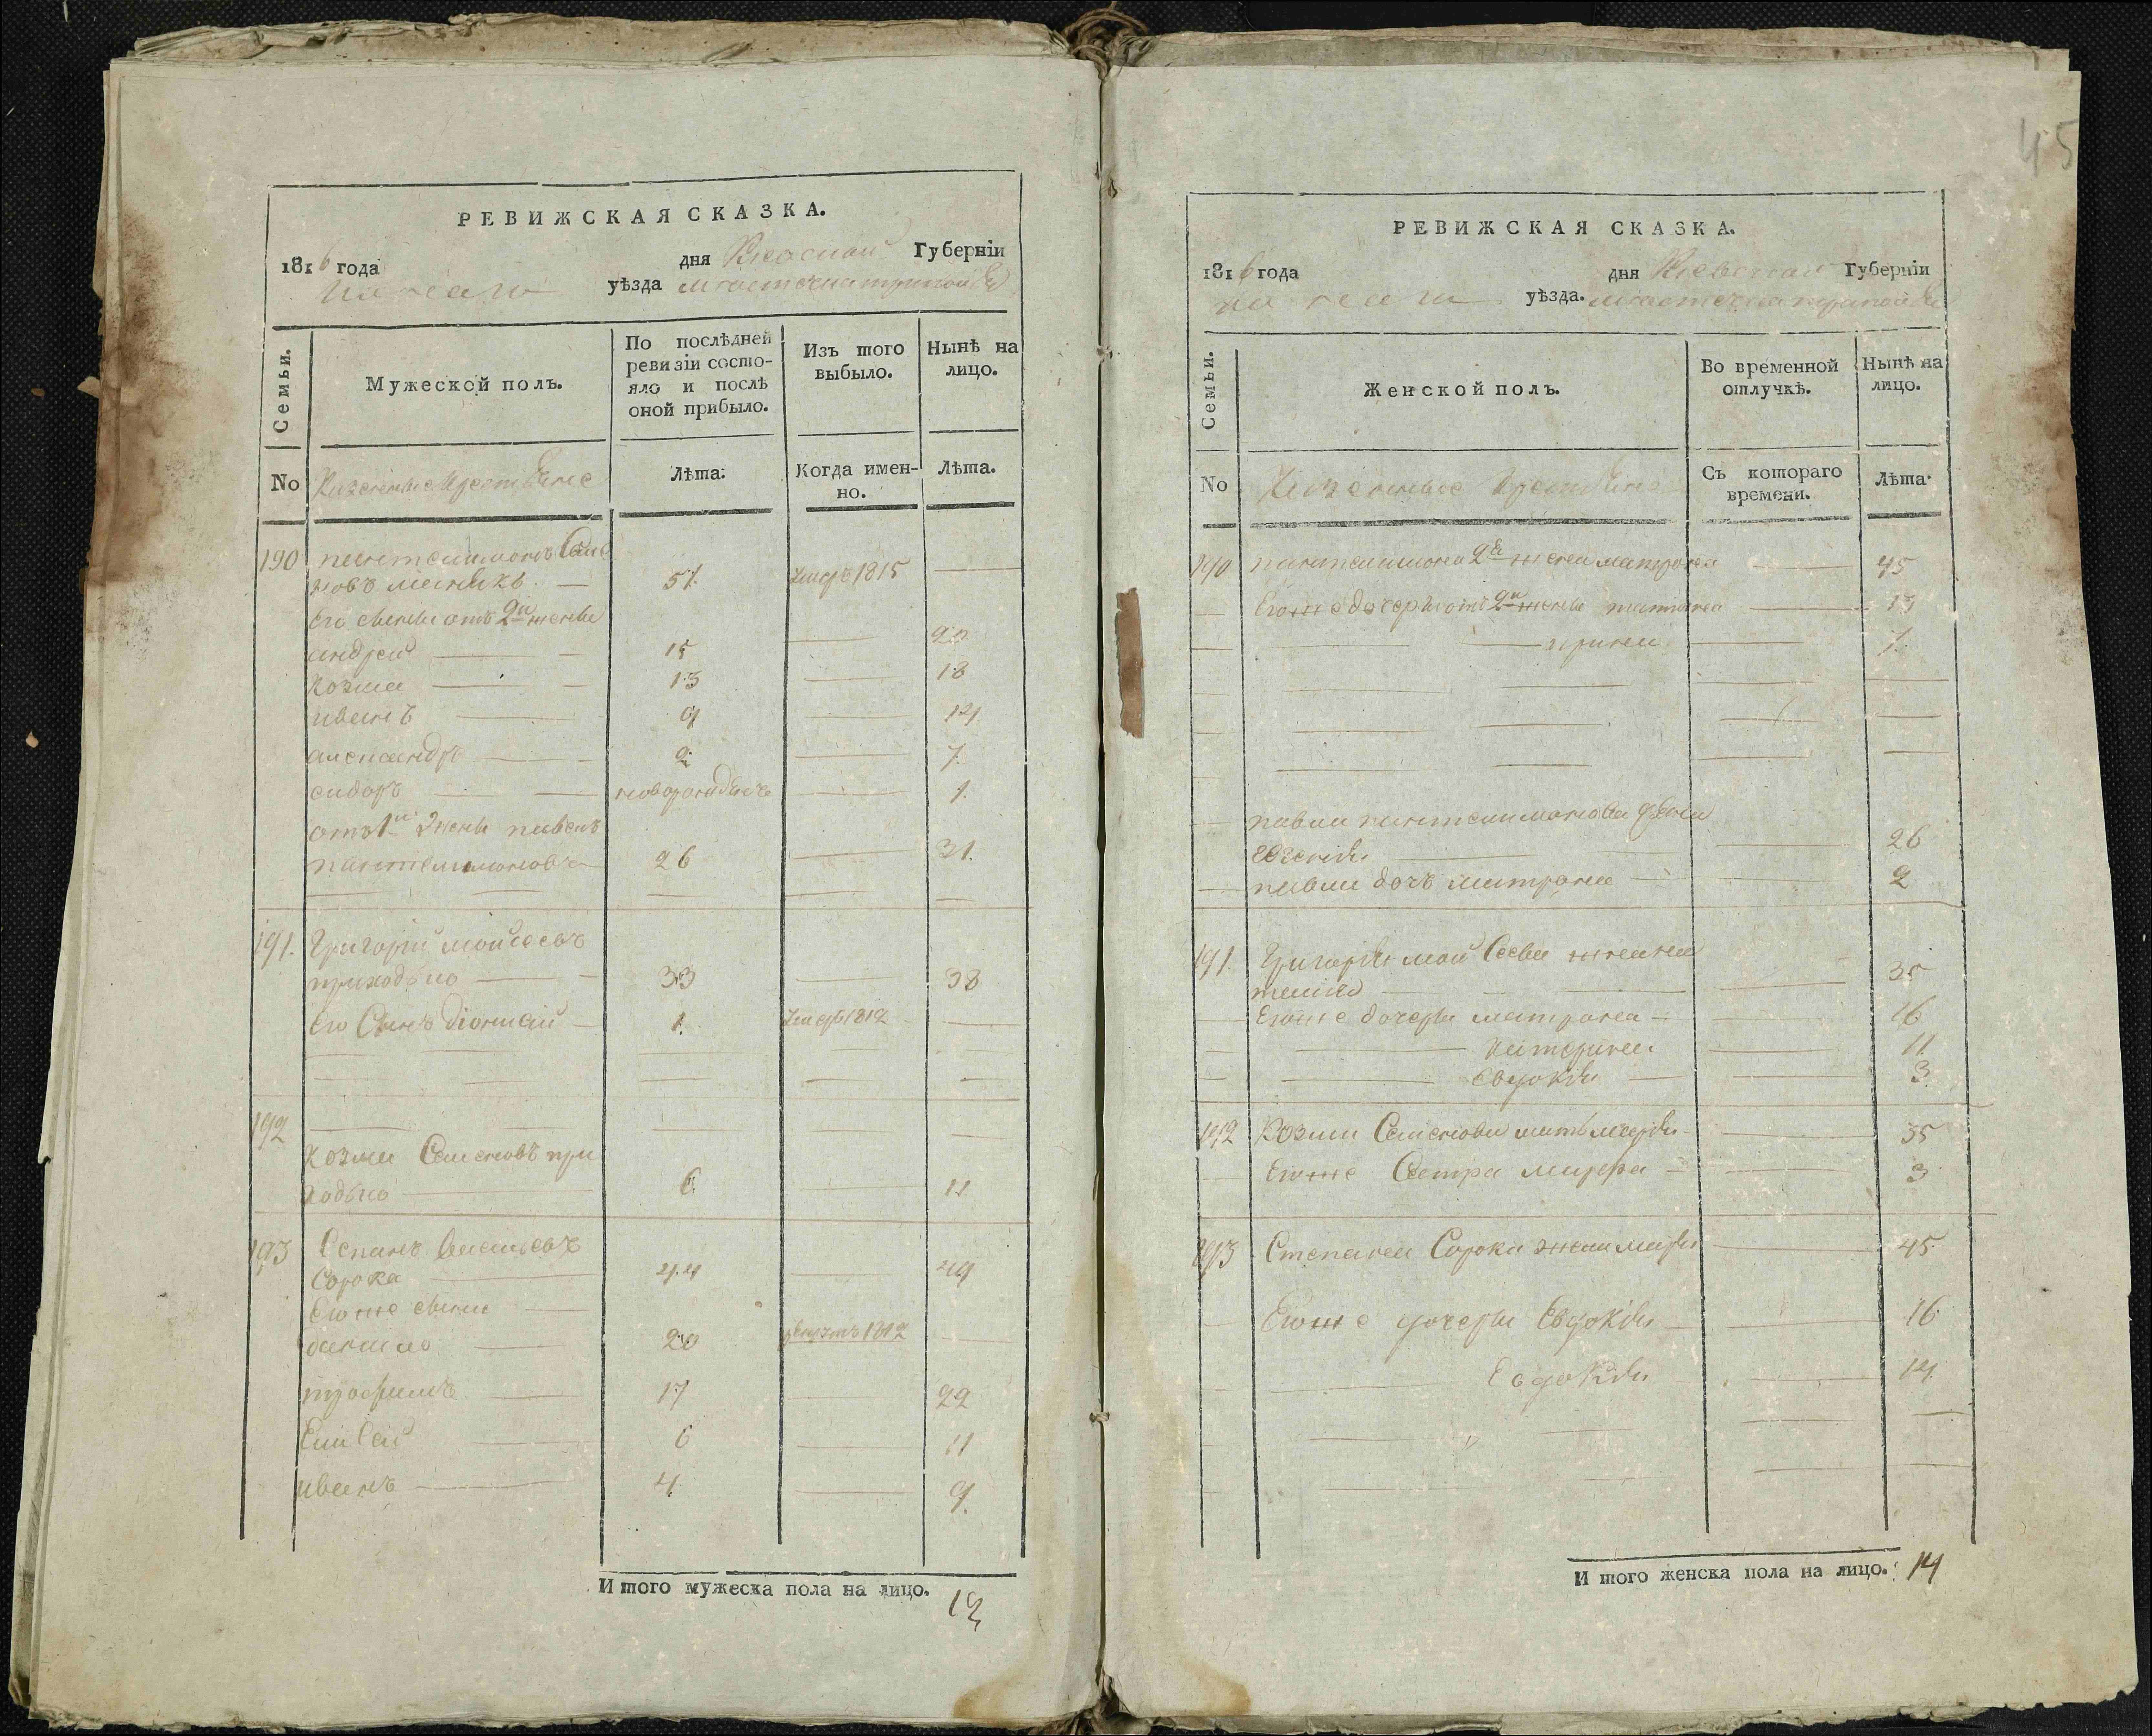 45
РЕВИЖСКАЯ СКАЗКА.
1816 года дня Киевской Губернїи
уѣзда местечка
Семьи.
Мужеской полъ.
По послѣдней ревизїи состояло и послѣ оной прибыло.
Изъ того выбыло.
Нынѣ на лицо.
No
Казенные
Лѣта.
Когда именно.
Лѣта.
190 пантелимонъ
51. умеръ 1815
его сыны отъ 2й жены
андрей 15 20
козма 13 18
иванъ 9 14
александръ 2 7.
сидоръ 1.
отъ 1й жены павелъ
пантелимоновъ 26 31.
191. Григорій мойсеевъ
приходко 33 38
его Сынъ 1. умеръ 1812
192
козма Семеновъ при
ходко 6 11
193 Васильевъ
Сорока 44 49
его же сыны
данило 20 1812
трофимъ 17 22
Елисей 6 11
иванъ 4 9.
И того мужеска пола на лицо. 12
РЕВИЖСКАЯ СКАЗКА.
1816 года дня Киевской Губернїи
уѣзда. местечка
Семьи.
Женской полъ.
Во временной отлучкѣ.
Нынѣ на лицо.
No
Казенные
Съ котораго времени.
Лѣта.
190 пантелимона 2я жена матрона 45
Его же дочери отъ 2й жены татіана 13
ирина 1.
павла пантелимонова жена
26
павла дочь матрона 2
191. Григорія мойсеева жена
35
Его же дочери матрона 16
катерина 11
Евдокія 3
192 Козмы Семенова мать марія 35
Его же Сестра марфа 3
193 Степана Сороки жена марія 45
Его же дочери Евдокія 16
Евдокія 14
И того женска пола на лицо. 14